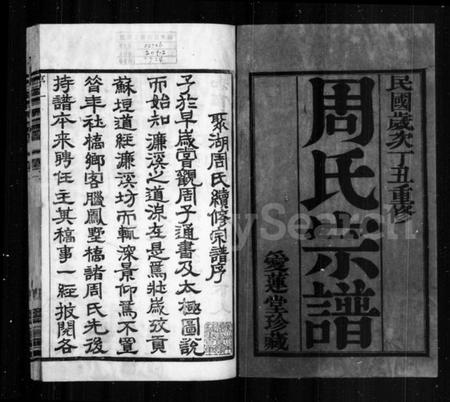 民國歲次丁丑重修
周氏宗譜
愛蓮堂珍藏
聚湖周氏續修宗譜序
子於早歲嘗觀周子通書及太極圖說
而始知濂溪之道源在是焉壯歲攷貢
蘇垣道經濂溪坊而輒深景仰焉不置
夆社橋鄉客臘鳳墅橋諸周氏先後
持譜本來聘任主其稿事一經披閱各
MySearch